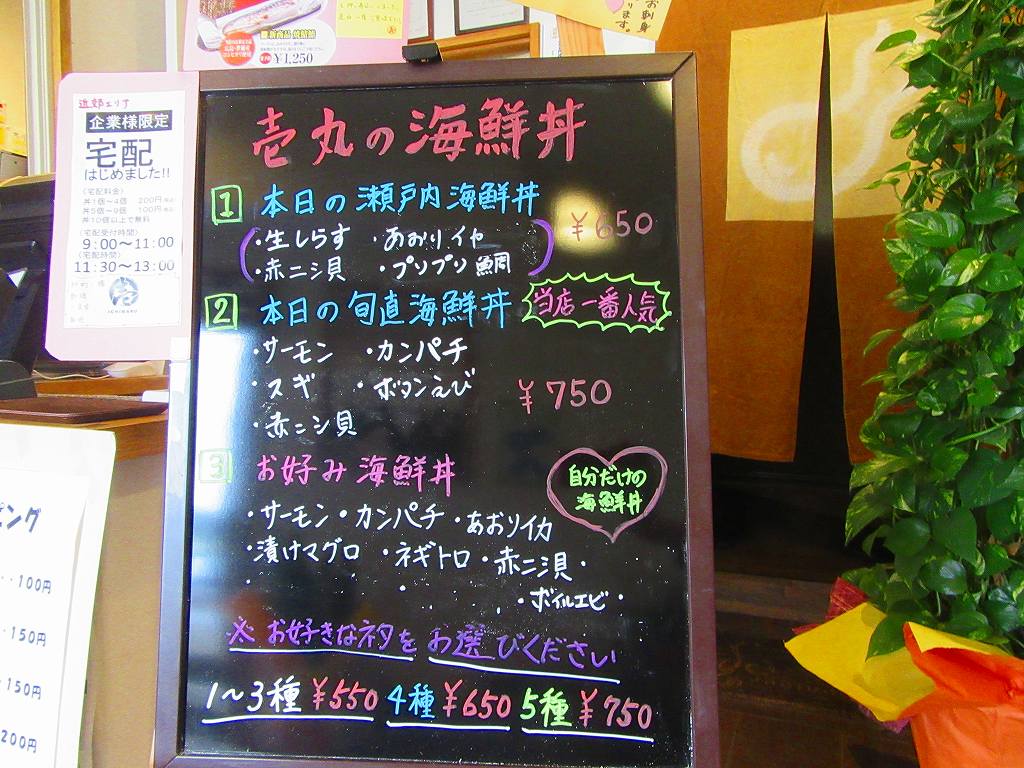 新商品 焼餡餡
¥1,250
お刺身
ます。
近郊エリア
企業様限定
宅配
はじめました!!
〈宅配料金〉
丼1個〜4個 200円(税込)
丼5個〜9個 100円(税込)
丼10個以上で無料
〈宅配受付時間〉
9:00〜11:00
〈宅配時間〉
11:30〜13:00
ICHIMARU
壱丸の海鮮丼
1 本日の瀬戸内海鮮丼
・生しらす ・あおりイヤ
・赤ニシ貝 ・プリプリ鯛
¥650
2 本日の旬直海鮮丼
当店一番人気
・サーモン ・カンパチ
・スギ ・ボタンえび
・赤ニシ貝
¥750
3 お好み海鮮丼
自分だけの
海鮮丼
・サーモン・カンパチ・あおりイカ
・漬けマグロ ・ネギトロ・赤ニシ貝・
・ボイルエビ・
※お好きなネタをお選びください
1〜3種¥550 4種¥650 5種¥750
ピング
・・100円
・150円
・150円
200円